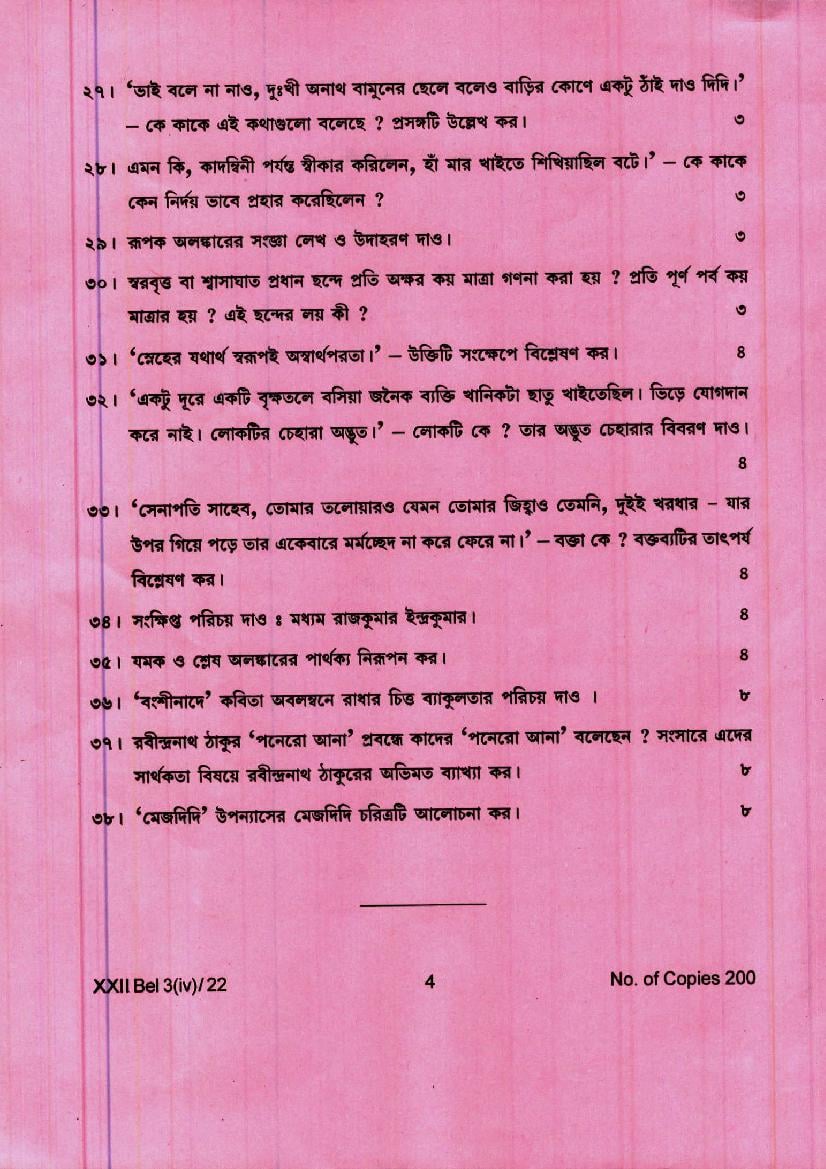 ২৭। ‘ভাই বলে না নাও, দুঃখী অনাথ বামুনের ছেলে বলেও বাড়ির কোণে একটু ঠাঁই দাও দিদি।’
– কে কাকে এই কথাগুলো বলেছে ? প্রসঙ্গটি উল্লেখ কর। ৩
২৮। এমন কি, কাদম্বিনী পর্যন্ত স্বীকার করিলেন, হাঁ মার খাইতে শিখিয়াছিল বটে।’ – কে কাকে
কেন নির্দয় ভাবে প্রহার করেছিলেন ? ৩
২৯। রূপক অলঙ্কারের সংজ্ঞা লেখ ও উদাহরণ দাও। ৩
৩০। স্বরবৃত্ত বা শ্বাসাঘাত প্রধান ছন্দে প্রতি অক্ষর কয় মাত্রা গণনা করা হয় ? প্রতি পূর্ণ পর্ব কয়
মাত্রার হয় ? এই ছন্দের লয় কী ? ৩
৩১। ‘স্নেহের যথার্থ স্বরূপই অস্বার্থপরতা।’ – উক্তিটি সংক্ষেপে বিশ্লেষণ কর। ৪
৩২। ‘একটু দূরে একটি বৃক্ষতলে বসিয়া জনৈক ব্যক্তি খানিকটা ছাতু খাইতেছিল। ভিড়ে যোগদান
করে নাই। লোকটির চেহারা অদ্ভুত।’ – লোকটি কে ? তার অদ্ভুত চেহারার বিবরণ দাও।
৪
৩৩। ‘সেনাপতি সাহেব, তোমার তলোয়ারও যেমন তোমার জিহ্বাও তেমনি, দুইই খরধার – যার
উপর গিয়ে পড়ে তার একেবারে মর্মচ্ছেদ না করে ফেরে না।’ – বক্তা কে ? বক্তব্যটির তাৎপর্য
বিশ্লেষণ কর। ৪
৩৪। সংক্ষিপ্ত পরিচয় দাও ঃ মধ্যম রাজকুমার ইন্দ্রকুমার। ৪
৩৫। যমক ও শ্লেষ অলঙ্কারের পার্থক্য নিরূপন কর। ৪
৩৬। ‘বংশীনাদে’ কবিতা অবলম্বনে রাধার চিত্ত ব্যাকুলতার পরিচয় দাও । ৮
৩৭। রবীন্দ্রনাথ ঠাকুর ‘পনেরো আনা’ প্রবন্ধে কাদের ‘পনেরো আনা’ বলেছেন ? সংসারে এদের
সার্থকতা বিষয়ে রবীন্দ্রনাথ ঠাকুরের অভিমত ব্যাখ্যা কর। ৮
৩৮। ‘মেজদিদি’ উপন্যাসের মেজদিদি চরিত্রটি আলোচনা কর। ৮
XXII Bel 3(iv)/ 22 4 No. of Copies 200